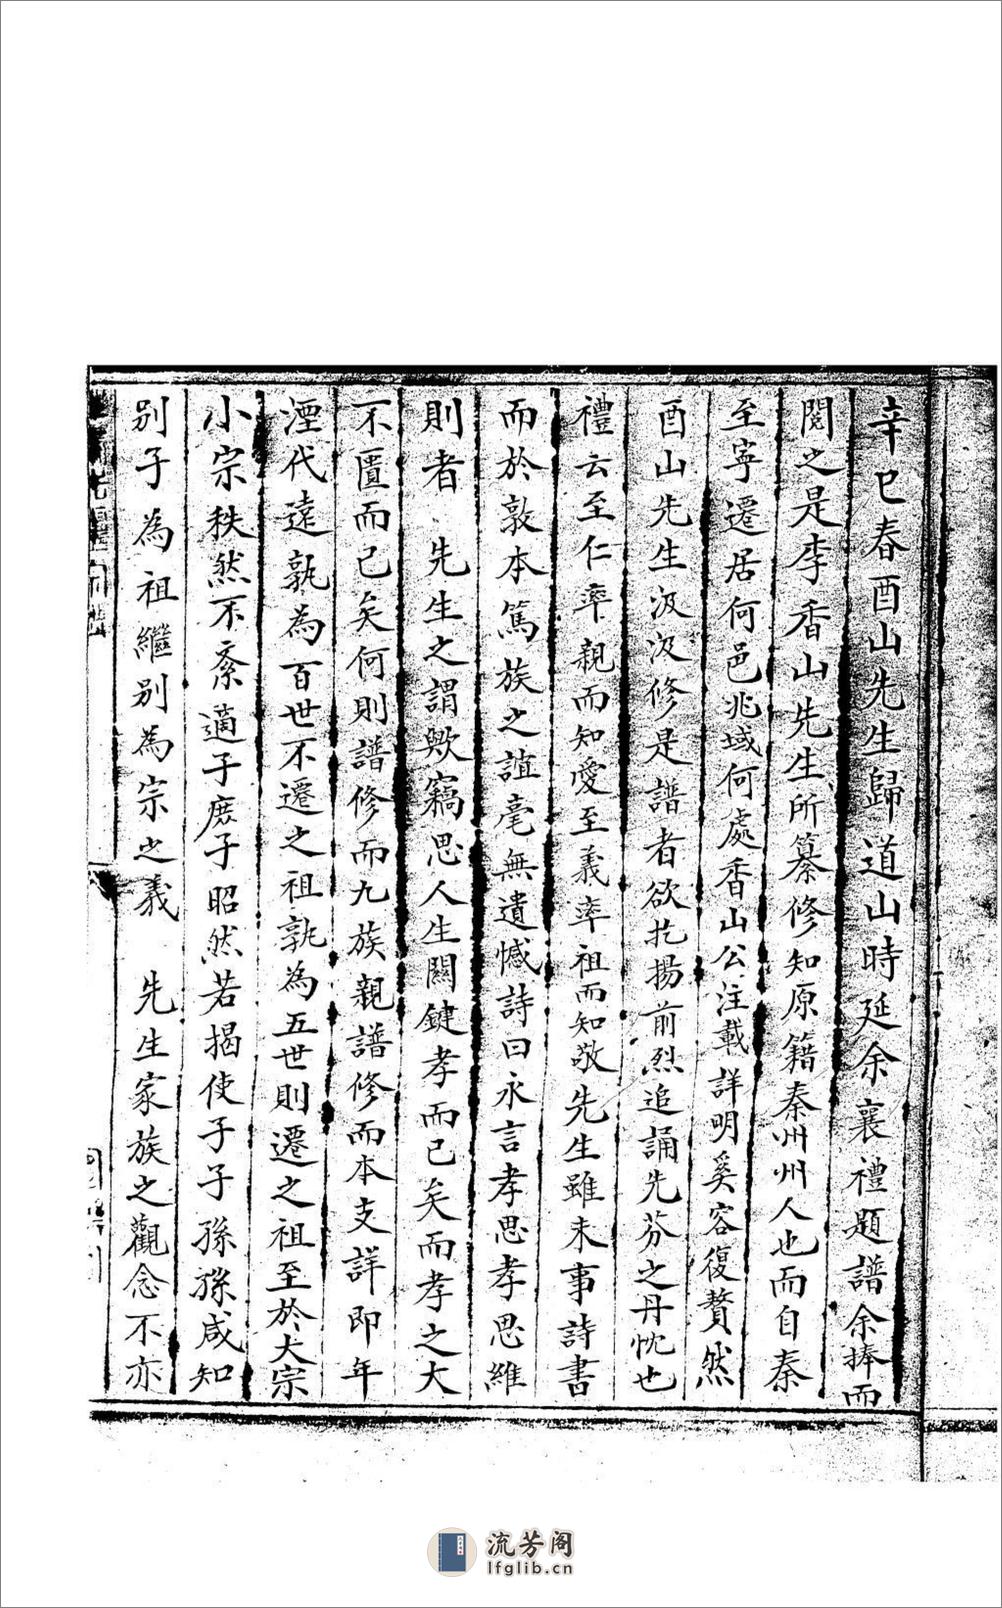 辛巳春酉山先生歸道山時延余襄禮題譜余捧而
閱之是李香山先生所纂修知原籍秦州州人也而自秦
至寧遷居何邑兆域何處香山公注載詳明奚容復贅然
酉山先生汲汲修是譜者欲扢揚前烈追誦先芬之丹忱也
禮云至仁率親而知愛至義率祖而知敬先生雖未事詩書
而於敦本篤族之誼毫無遺憾詩曰永言孝思孝思維
則者 先生之謂歟竊思人生關鍵孝而已矣而孝之大
不匱而已矣何則譜修而九族親譜修而本支詳即年
湮代遠孰為百世不遷之祖孰為五世則遷之祖至於大宗
小宗秩然不紊適子庶子昭然若揭使子子孫孫咸知
別子為祖繼別為宗之義 先生家族之觀念不亦
流芳阁
lfglib.cn